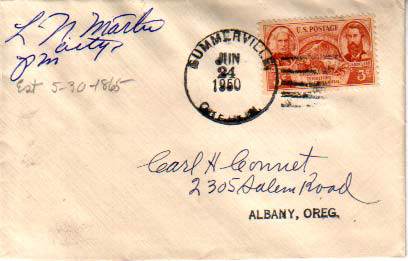 L N Martin
city
pm
Est 5-30-1865
SUMMERVILLE
JUN
24
1950
OREGON
U.S. POSTAGE
3¢
Carl H Connet
2305 Salem Road
ALBANY, OREG.